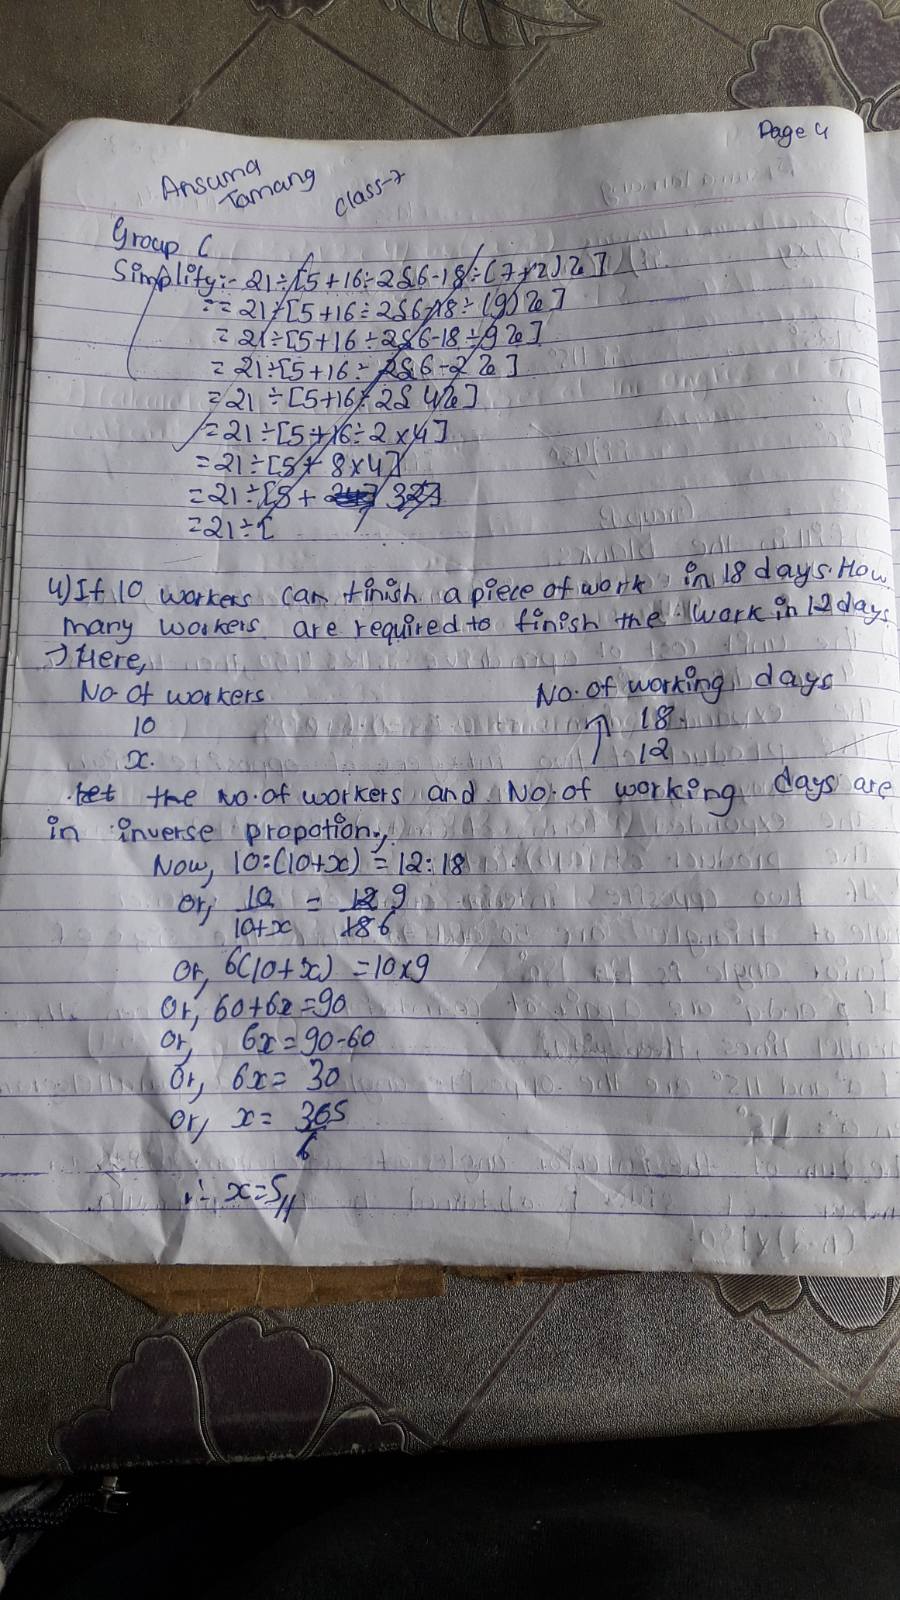 Page 4
Ansuma
Tamang
class-7
Group C
Simplify:- 21÷[5+16÷2{6-18÷(7+2)}]
== 21÷[5+16÷2{6-18÷(9)}]
= 21÷[5+16÷2{6-18÷9}]
= 21÷[5+16÷2{6-2}]
= 21÷[5+16÷2{4}]
= 21÷[5+16÷2×4]
= 21÷[5+8×4]
= 21÷[5+ 32]
= 21÷[
4) If 10 workers can finish a piece of work in 18 days. How
many workers are required to finish the work in 12 days
→ Here,
No. of workers No. of working days
10 ↑ 18
x. 12
Let the No. of workers and No. of working days are
in inverse propotion,
Now, 10:(10+x) = 12:18
or, 10/10+x = 12 9/18 6
Or, 6(10+x) = 10×9
Or, 60+6x=90
Or, 6x=90-60
Or, 6x= 30
Or, x= 30 5/6
∴ x=5//